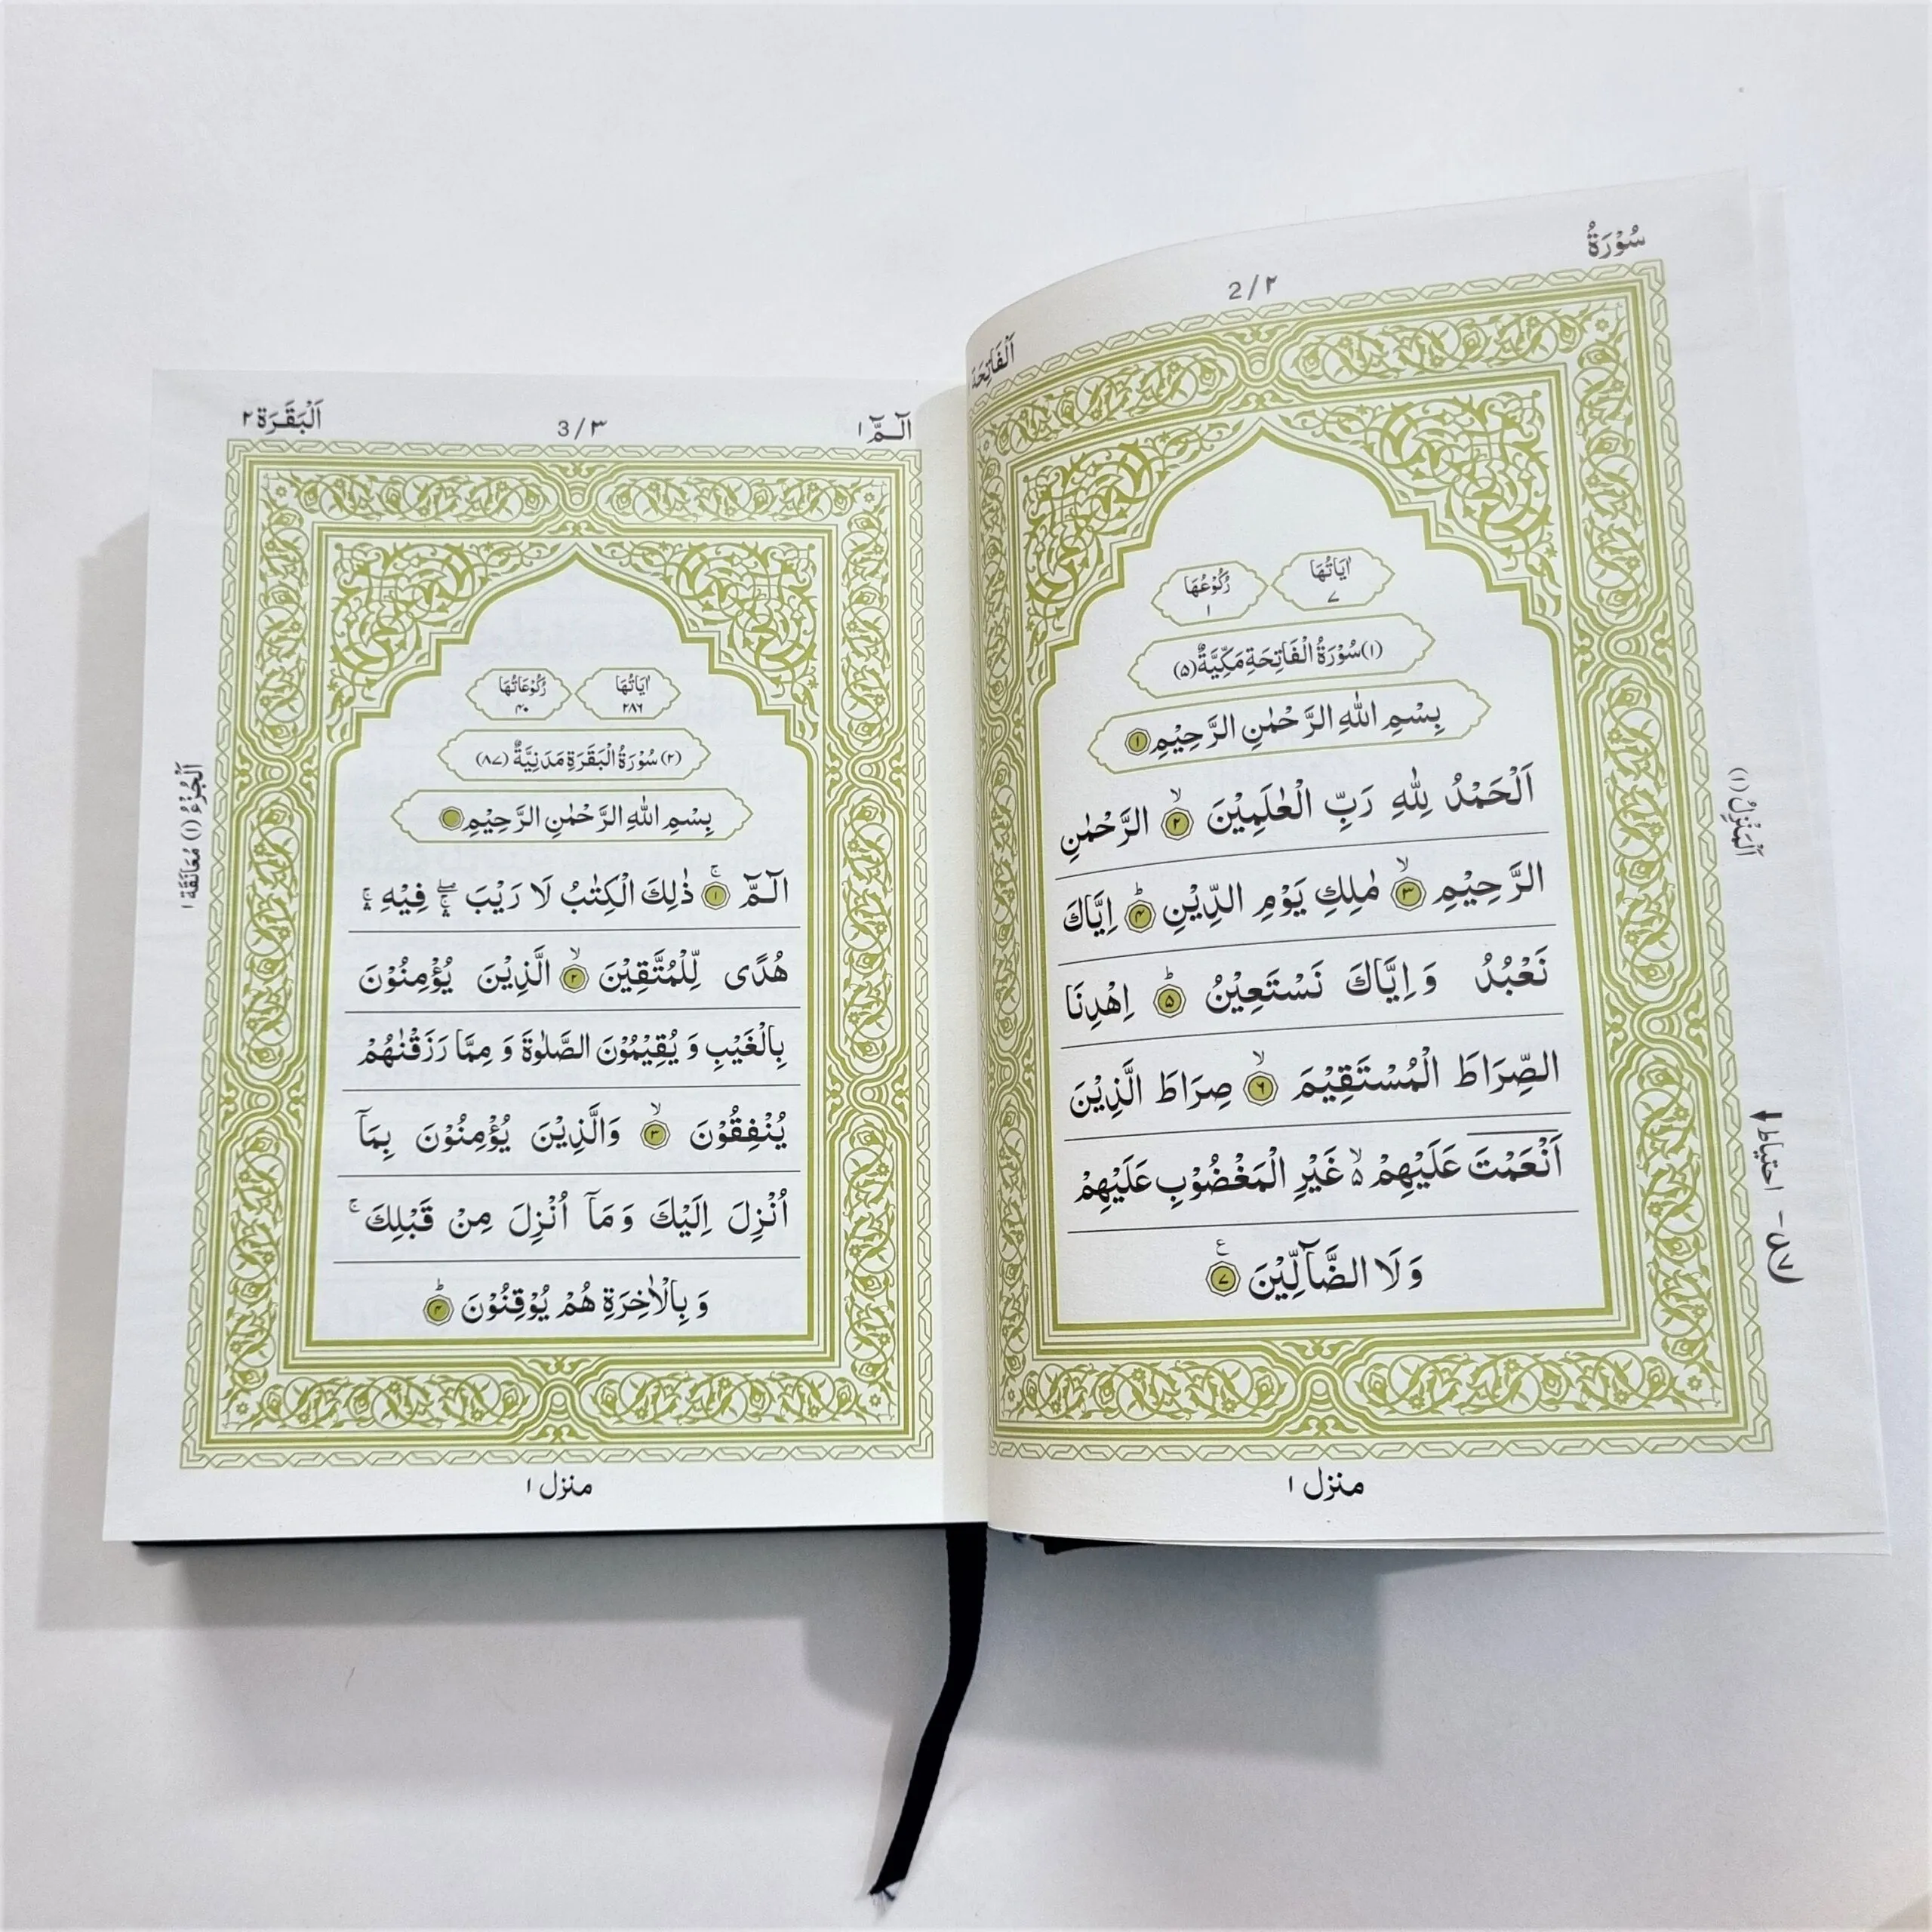 سُوْرَةُ
2/۲
اَلْفَاتِحَة
اٰيَاتُهَا ۷
رُكُوْعُهَا ۱
(۱) سُوْرَةُ الْفَاتِحَةِ مَكِّيَّةٌ (۵)
بِسْمِ اللهِ الرَّحْمٰنِ الرَّحِيْمِ ۱
اَلْحَمْدُ لِلّٰهِ رَبِّ الْعٰلَمِيْنَ ۙ ۲ الرَّحْمٰنِ
الرَّحِيْمِ ۙ ۳ مٰلِكِ يَوْمِ الدِّيْنِ ؕ ۴ اِيَّاكَ
نَعْبُدُ وَاِيَّاكَ نَسْتَعِيْنُ ؕ ۵ اِهْدِنَا
الصِّرَاطَ الْمُسْتَقِيْمَ ۙ ۶ صِرَاطَ الَّذِيْنَ
اَنْعَمْتَ عَلَيْهِمْ ۙ۵ غَيْرِ الْمَغْضُوْبِ عَلَيْهِمْ
وَلَا الضَّآلِّيْنَ ع ۷
منزل ۱
اَلْمَنْزِلُ (۱)
احتياط
الٓـمّٓ ۱
3/۳
اَلْبَقَرَة ۲
اٰيَاتُهَا ۲۸۶
رُكُوْعَاتُهَا ۴۰
(۲) سُوْرَةُ الْبَقَرَةِ مَدَنِيَّةٌ (۸۷)
بِسْمِ اللهِ الرَّحْمٰنِ الرَّحِيْمِ
الٓـمّٓ ۚ ۱ ذٰلِكَ الْكِتٰبُ لَا رَيْبَ ۖۛۚ فِيْهِ ۛۚ
هُدًى لِّلْمُتَّقِيْنَ ۙ ۲ الَّذِيْنَ يُؤْمِنُوْنَ
بِالْغَيْبِ وَيُقِيْمُوْنَ الصَّلٰوةَ وَمِمَّا رَزَقْنٰهُمْ
يُنْفِقُوْنَ ۙ ۳ وَالَّذِيْنَ يُؤْمِنُوْنَ بِمَآ
اُنْزِلَ اِلَيْكَ وَمَآ اُنْزِلَ مِنْ قَبْلِكَ ۚ
وَبِالْاٰخِرَةِ هُمْ يُوْقِنُوْنَ ؕ ۴
منزل ۱
اَلْجُزْءُ (۱) مُعَانَقَة ۱